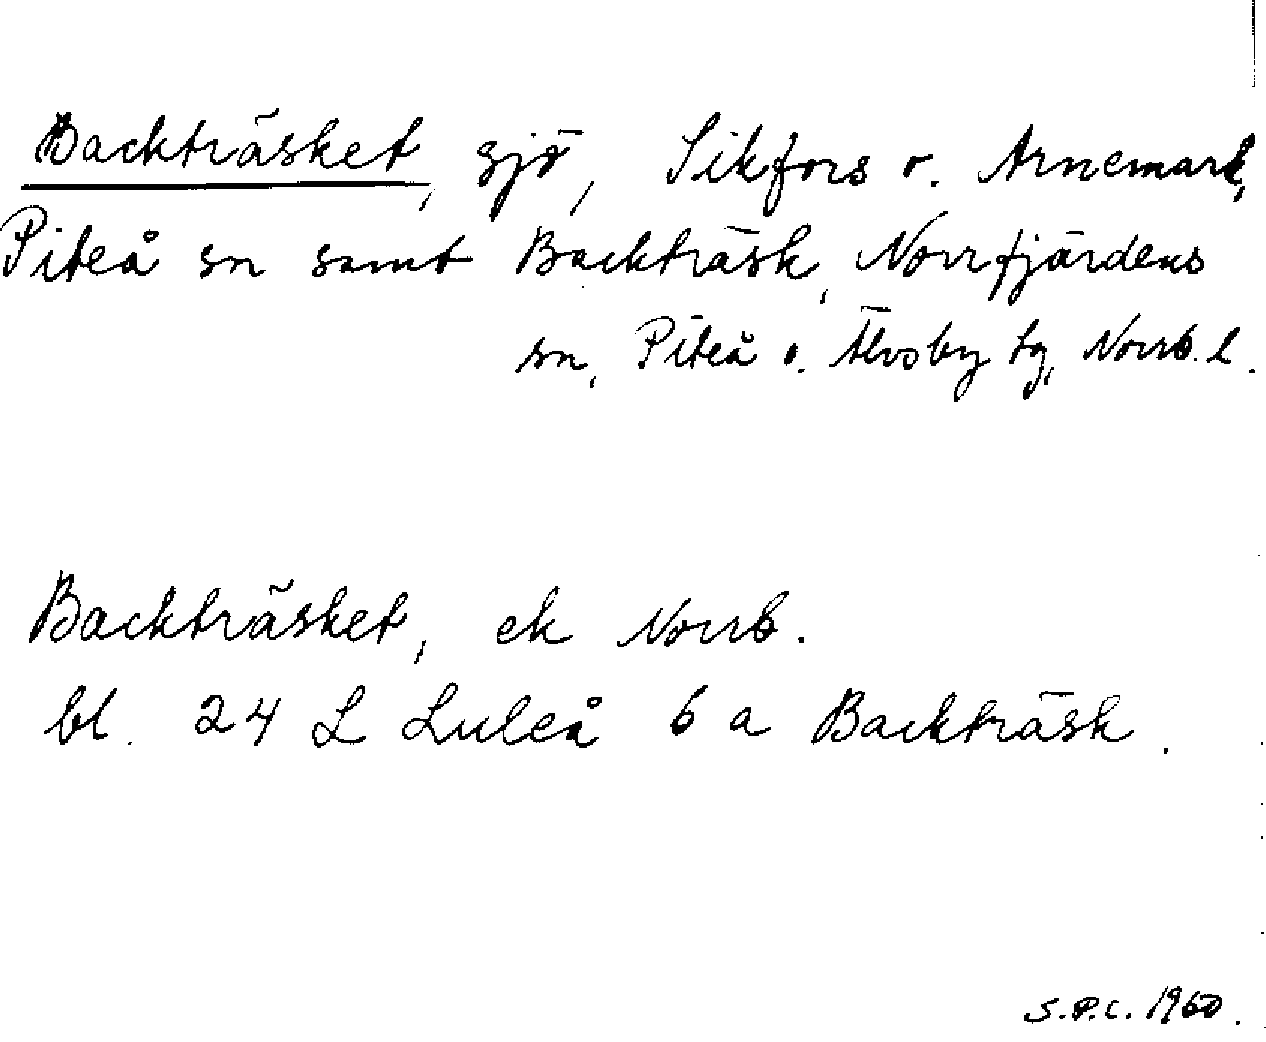 Backträsket, sjö, Sikfors o. Arnemark,
Piteå sn samt Backträsk, Norrfjärdens
sn, Piteå o. Älvsby tg, Norrb. l.
Backträsket, ek Norrb.
bl. 24 L Luleå 6 a Backträsk.
S.P.C. 1960.